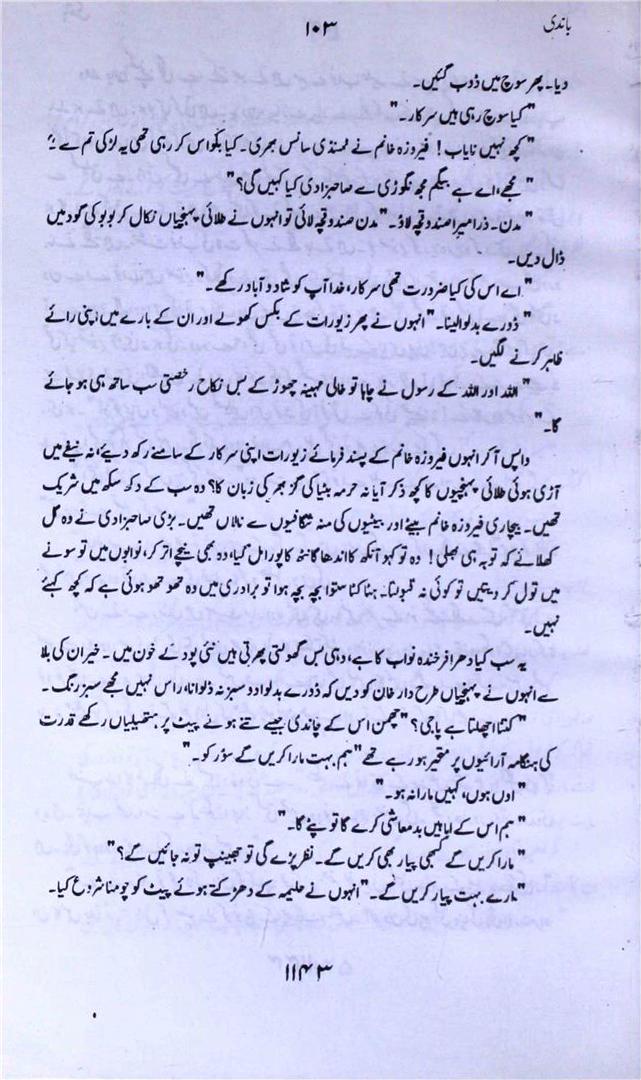 باندی
۱۰۳
دیا۔ پھر سوچ میں ڈوب گئیں۔
"کیا سوچ رہی ہیں سرکار۔"
"کچھ نہیں نایاب! فیروزہ خانم نے ٹھنڈی سانس بھری۔ کیا بکواس کر رہی تھی یہ لڑکی تم سے؟"
"مجھے، اے ہے بیگم مجھ نگوڑی سے صاحبزادی کیا کہیں گی؟"
"مدن۔ ذرا میرا صندوقچہ لاؤ۔" مدن صندوقچہ لائی تو انہوں نے طلائی پہنچیاں نکال کر بوبو کی گود میں
ڈال دیں۔
"اے اس کی کیا ضرورت تھی سرکار، خدا آپ کو شاد و آباد رکھے۔"
"ڈورے بدلوا لینا۔" انہوں نے پھر زیورات کے بکس کھولے اور ان کے بارے میں اپنی رائے
ظاہر کرنے لگیں۔
"اللہ اور اللہ کے رسول نے چاہا تو خالی مہینہ چھوڑ کے بس نکاح رخصتی سب ساتھ ہی ہو جائے
گا۔"
واپس آ کر انہوں فیروزہ خانم کے پسند فرمائے زیورات اپنی سرکار کے سامنے رکھ دیے، نہ نیفے میں
آڑی ہوئی طلائی پہنچیوں کا کچھ ذکر آیا نہ حرمہ بٹیا کی گز بھر کی زبان کا؟ وہ سب کے دکھ سکھ میں شریک
تھیں۔ بیچاری فیروزہ خانم بیٹے اور بیٹیوں کی منہ شگافیوں سے نالاں تھیں۔ بڑی صاحبزادی نے وہ گل
کھلائے کہ توبہ ہی بھلی! وہ تو کہو آنکھ کا اندھا گانٹھ کا پورا مل گیا، وہ بھی نیچے اتر کر، نوابوں میں تو سونے
میں تول کر دیتیں تو کوئی نہ قبولتا۔ ہٹا کٹا ستوانسا بچہ ہوا تو برادری میں وہ تھو تھو ہوئی ہے کہ کچھ کہیے
نہیں۔
یہ سب کیا دھرا فرخندہ نواب کا ہے، وہی بس گھولتی پھرتی ہیں نئی پود کے خون میں۔ خیر ان کی بلا
سے انہوں نے پہنچیاں طرح دار خان کو دیں کہ ڈورے بدلوا دو سبز نہ ڈلوانا، راس نہیں مجھے سبز رنگ۔
"کتنا اچھلتا ہے پاجی؟" چھمن اس کے چاندی جیسے تنے ہوئے پیٹ پر ہتھیلیاں رکھے قدرت
کی ہنگامہ آرائیوں پر متحیر ہو رہے تھے "ہم بہت مارا کریں گے سؤر کو۔"
"اوں ہوں، کہیں مارا نہ ہو۔"
"ہم اس کے ابا ہیں بدمعاشی کرے گا تو پٹے گا۔"
"مارا کریں گے کبھی پیار بھی کریں گے۔ نظر پڑے گی تو جھینپ تو نہ جائیں گے؟"
"مارے بہت پیار کریں گے۔" انہوں نے حلیمہ کے دھڑکتے ہوئے پیٹ کو چومنا شروع کیا۔
۱۱۴۳